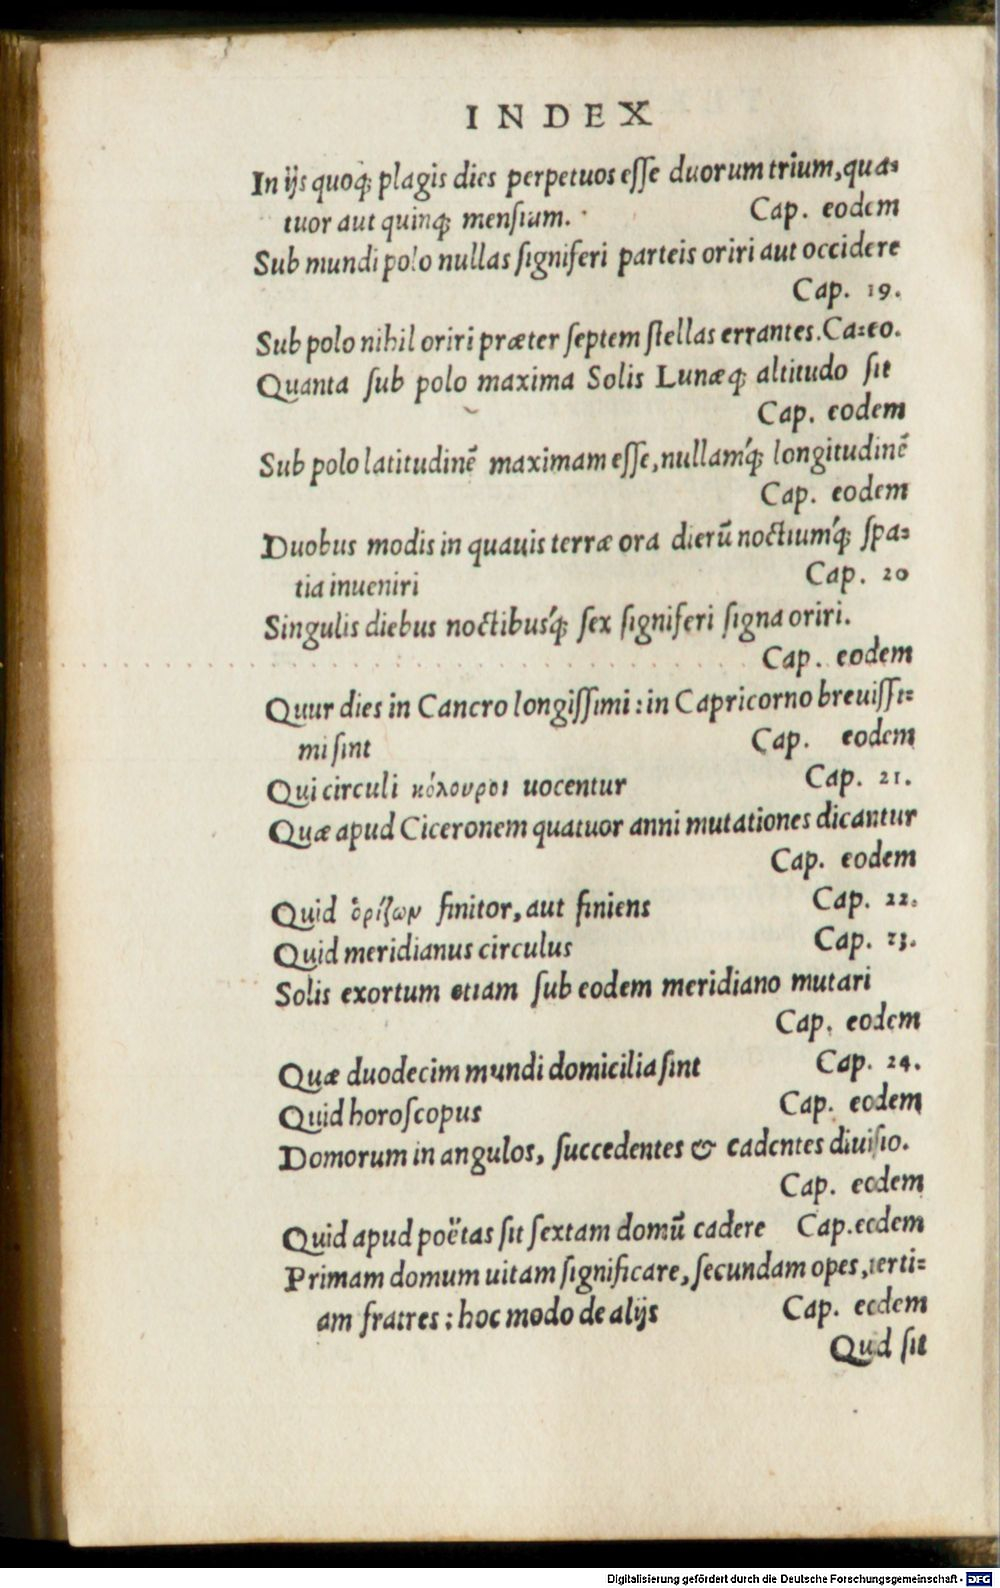 INDEX
In ijs quoq; plagis dies perpetuos eſſe duorum trium, qua=
tuor aut quinq; menſium. Cap. eodem
Sub mundi polo nullas ſigniferi parteis oriri aut occidere
Cap. 19.
Sub polo nihil oriri præter ſeptem ſtellas errantes. Ca:eo.
Quanta ſub polo maxima Solis Lunæq; altitudo ſit
Cap. eodem
Sub polo latitudinē maximam eſſe, nullamq́; longitudinē
Cap. eodem
Duobus modis in quauis terræ ora dierū noctiumq́; ſpa=
tia inueniri Cap. 20
Singulis diebus noctibusq́; ſex ſigniferi ſigna oriri.
Cap. eodem
Quur dies in Cancro longiſſimi : in Capricorno breuiſſi=
mi ſint Cap. eodem
Qui circuli κόλουροι uocentur Cap. 21.
Quæ apud Ciceronem quatuor anni mutationes dicantur
Cap. eodem
Quid ὁρίζων finitor, aut finiens Cap. 22.
Quid meridianus circulus Cap. 23.
Solis exortum etiam ſub eodem meridiano mutari
Cap. eodem
Quæ duodecim mundi domicilia ſint Cap. 24.
Quid horoſcopus Cap. eodem
Domorum in angulos, ſuccedentes & cadentes diuiſio.
Cap. eodem
Quid apud poëtas ſit ſextam domū cadere Cap.eodem
Primam domum uitam ſignificare, ſecundam opes, terti=
am fratres : hoc modo de alijs Cap. eodem
Quid ſit
Digitalisierung gefördert durch die Deutsche Forschungsgemeinschaft - DFG